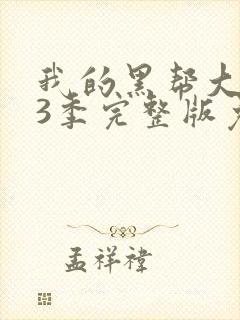 我的黑帮大
3季完整版
孟祥祎